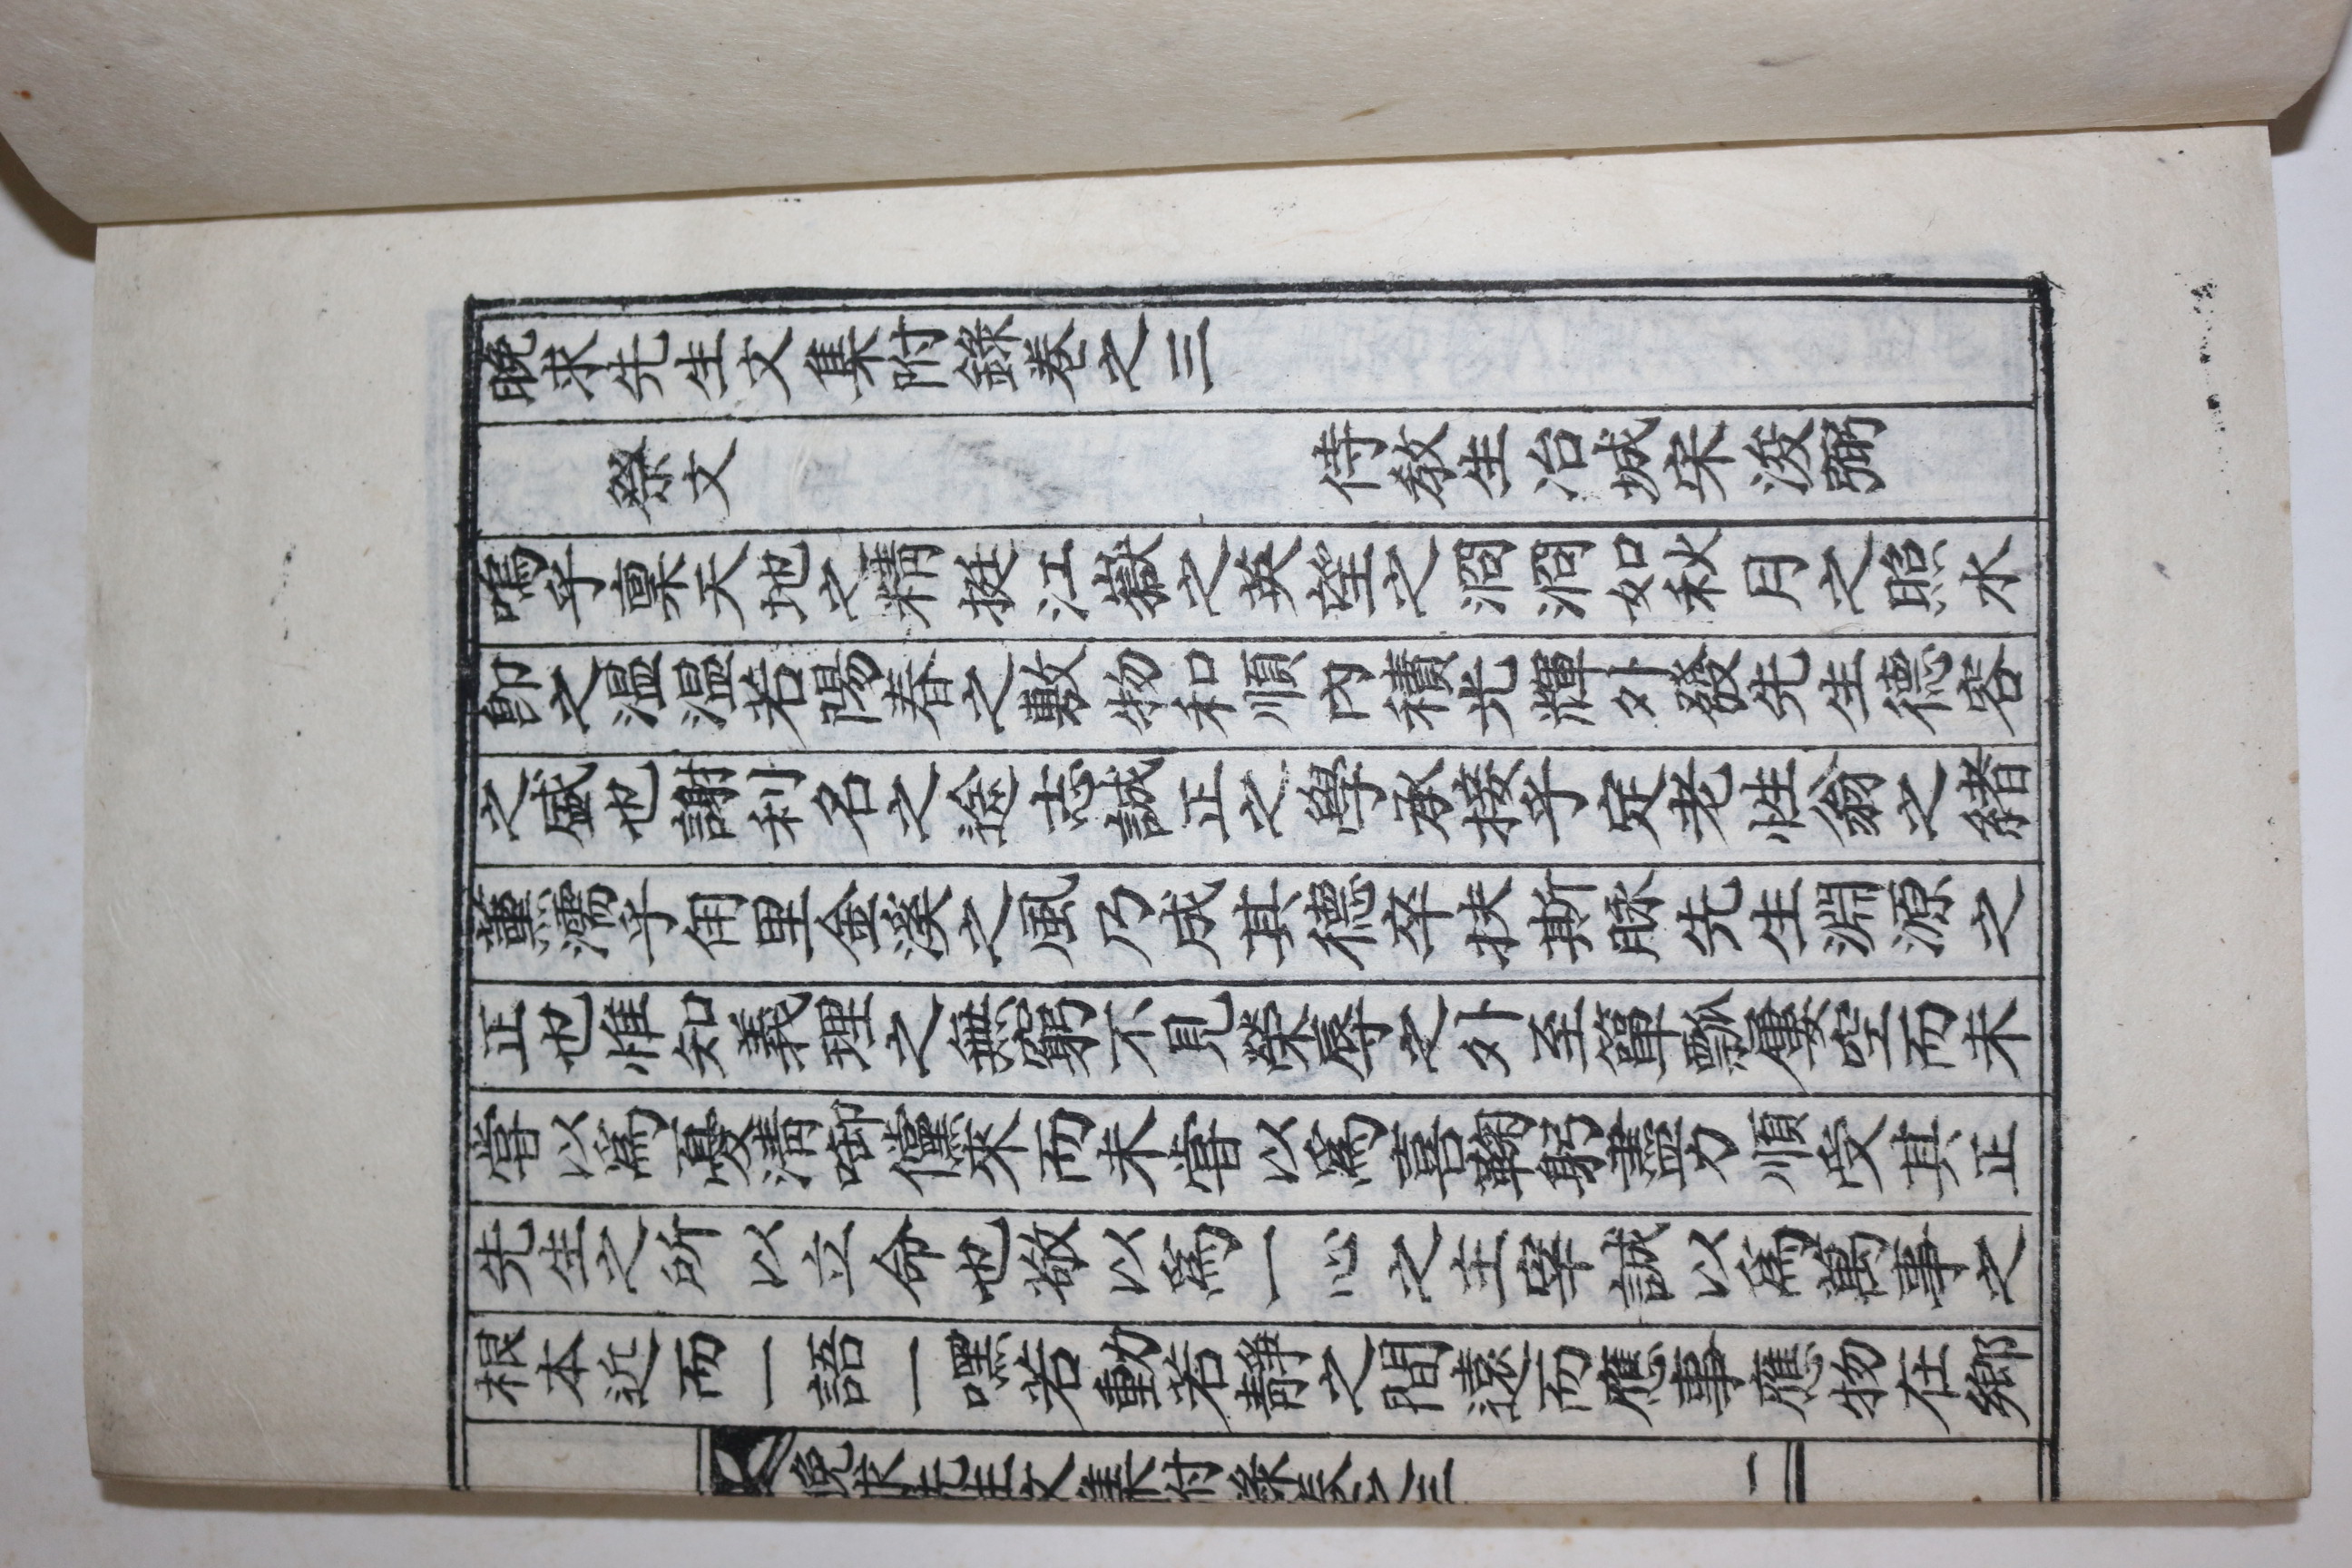 晚求先生文集附錄卷之三
祭文 侍敎生冶城宋浚弼
嗚乎稟天地之精挺江嶽之英望之泂泂如秋月之照水
卽之溫溫若陽春之敷物和順內積光輝外發先生德容
之盛也謝利名之途志誠正之學承接乎定老性翁之緖
薰濡乎甪里金溪之風乃成其德卒扶斯脉先生淵源之
正也惟知義理之無窮不見榮辱之外至簞瓢屢空而未
嘗以爲憂淸啣儻來而未嘗以爲喜鞠躬盡力順受其正
先生之所以立命也敬以爲一心之主宰誠以爲萬事之
根本近而一語一嘿若動若靜之間遠而應事應物在鄕
晚求先生文集附錄卷之三 一